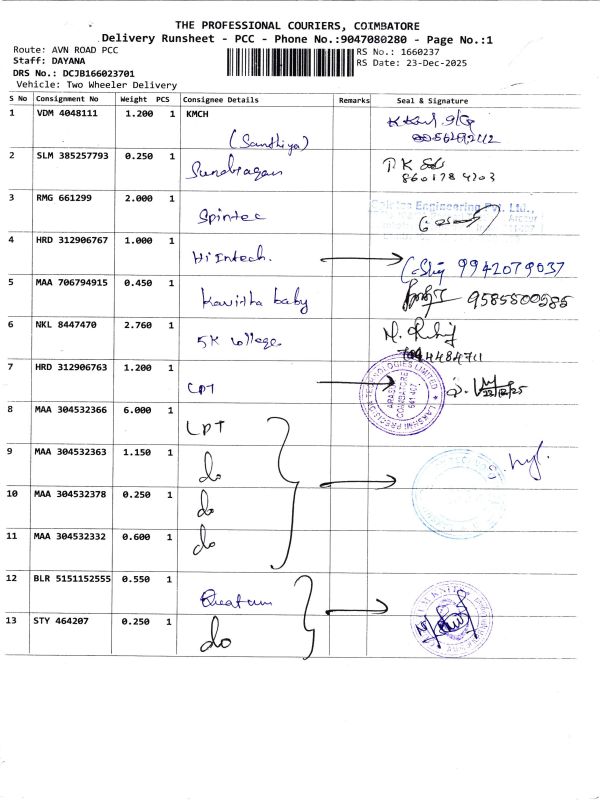 THE PROFESSIONAL COURIERS, COIMBATORE
Delivery Runsheet - PCC - Phone No.:9047080280 - Page No.:1
Route: AVN ROAD PCC
RS No.: 1660237
Staff: DAYANA
RS Date: 23-Dec-2025
DRS No.: DCJB166023701
Vehicle: Two Wheeler Delivery
S No Consignment No Weight PCS Consignee Details Remarks Seal & Signature
1 VDM 4048111 1.200 1 KMCH
(Santhiya)
2 SLM 385257793 0.250 1
3 RMG 661299 2.000 1 Spintec
Engineering Pvt. Ltd.,
4 HRD 312906767 1.000 1 Hi Intech. 9942079037
5 MAA 706794915 0.450 1 Kavitha baby 9585800585
6 NKL 8447470 2.760 1 SK College
7 HRD 312906763 1.200 1 LPT
LAKSHMI PRECISION TECHNOLOGIES LIMITED
COIMBATORE
641 407
8 MAA 304532366 6.000 1 LPT
9 MAA 304532363 1.150 1 do
10 MAA 304532378 0.250 1 do
11 MAA 304532332 0.600 1 do
12 BLR 5151152555 0.550 1
13 STY 464207 0.250 1 do